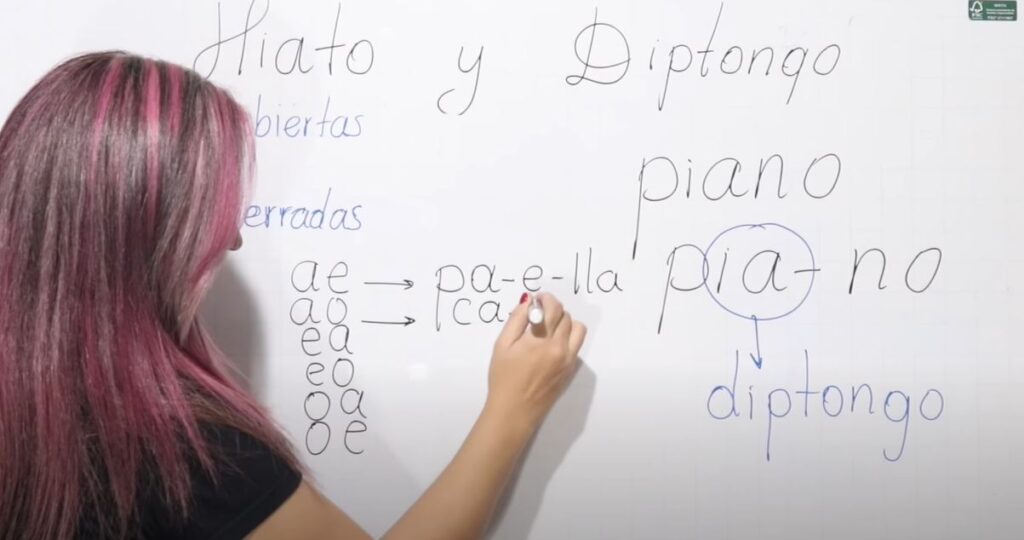 Hiato y Diptongo
biertas
erradas
piano
ae → pa-e-lla
ao → ca-
ea
eo
oa
oe
pia-no
diptongo